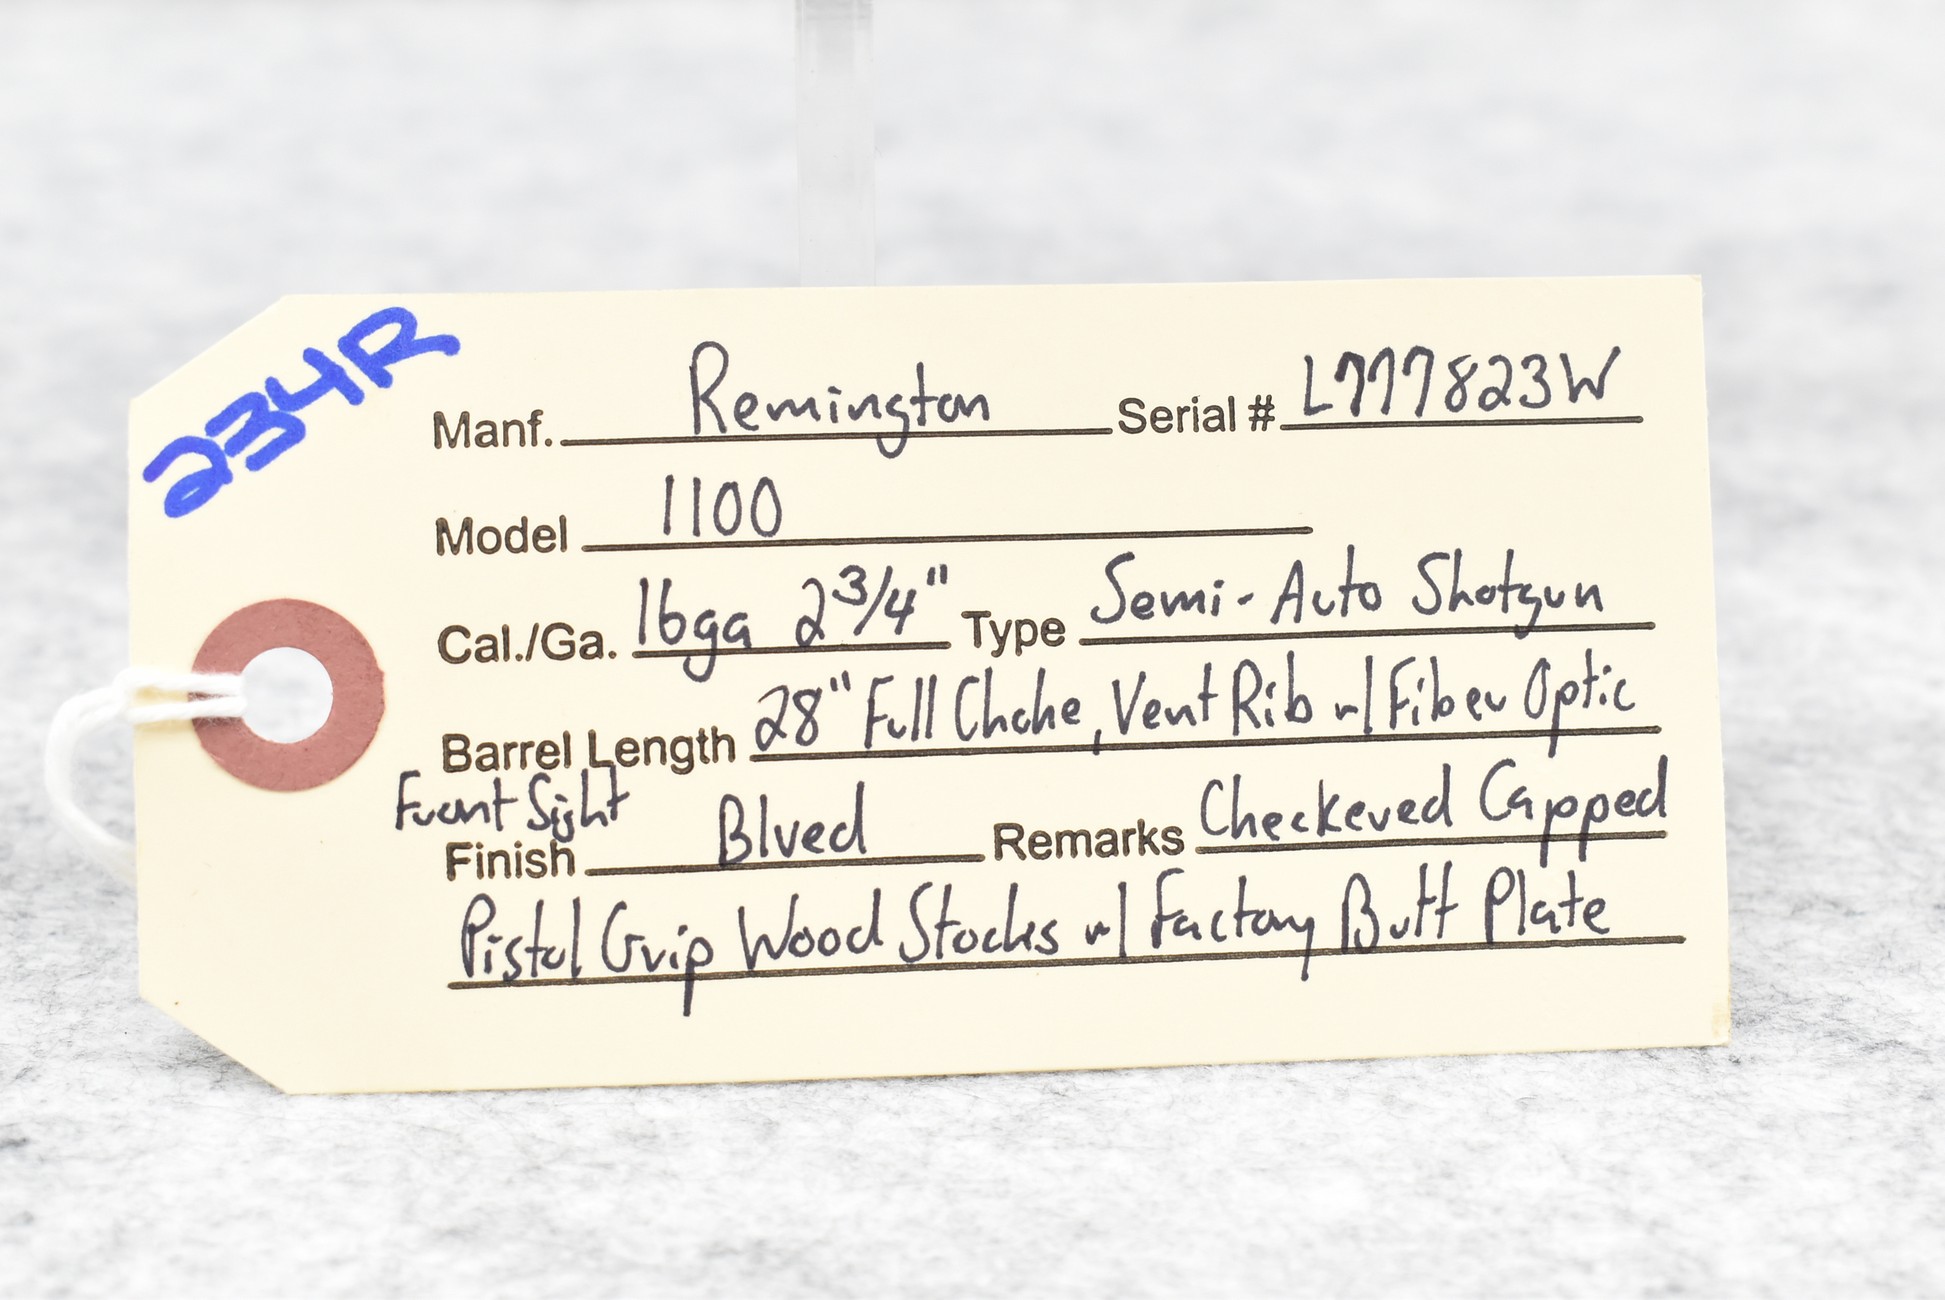 234R
Manf. Remington Serial # L777823W
Model 1100
Cal./Ga. 16ga 2 3/4" Type Semi-Auto Shotgun
Barrel Length 28" Full Choke, Vent Rib w/ Fiber Optic
Front Sight
Finish Blued Remarks Checkered Capped
Pistol Grip Wood Stocks w/ Factory Butt Plate